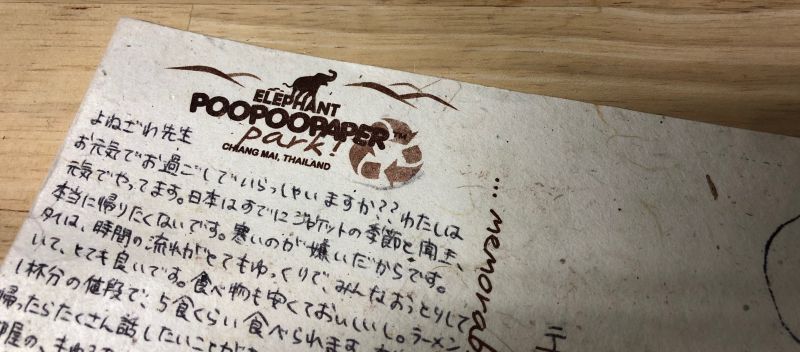 ELEPHANT
POOPOOPAPER™
park!
CHIANG MAI, THAILAND
...memorab
よねざわ先生
お元気でお過ごしでいらっしゃいますか??わたしは
元気でやってます。日本はすでにジャケットの季節と聞き、
本当に帰りたくないです。寒いのが嫌いだからです。
タイは、時間の流れがとてもゆっくりで、みんなおっとりして
いて、とても良いです。食べ物も安くておいしいし。ラーメン
1杯分の値段で、5食くらい食べられます。
帰ったらたくさん話したいことが